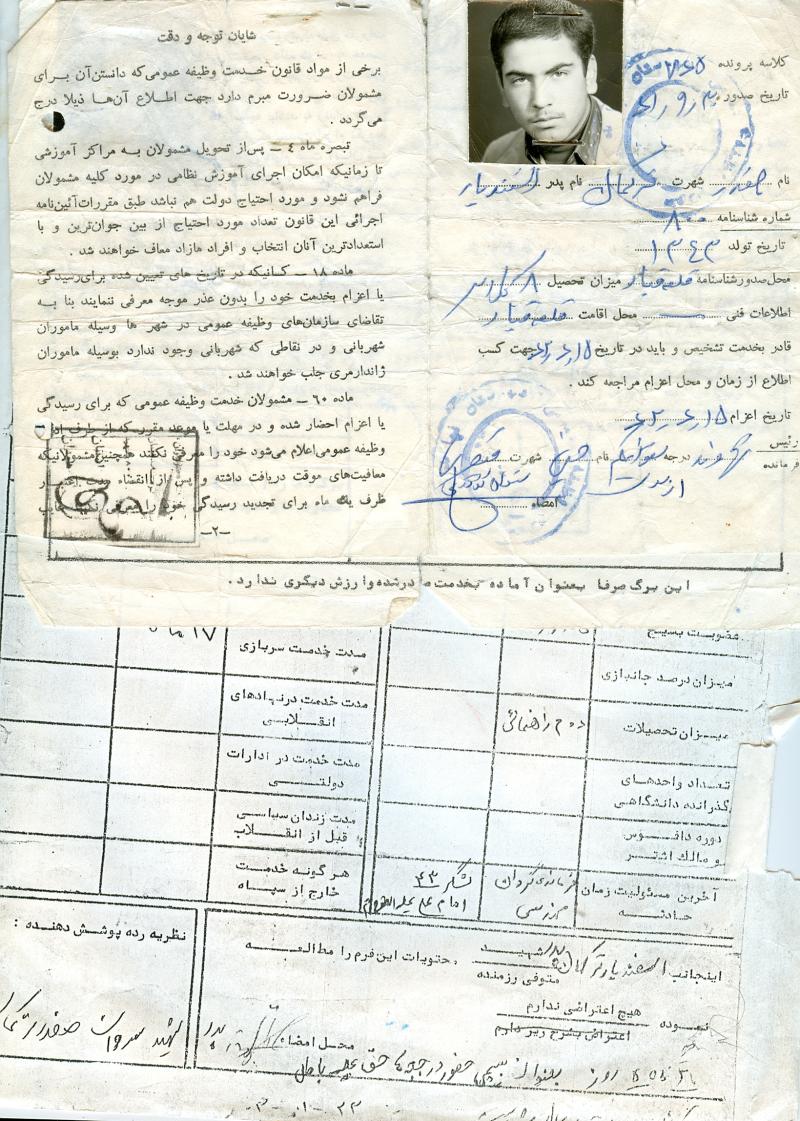 شایان توجه و دقت
برخی از مواد قانون خدمت وظیفه عمومی‌که دانستن‌آن برای
مشمولان ضرورت مبرم دارد جهت اطلاع آن‌ها ذیلا درج
می‌گردد .
تبصره ماه ٤ — پس‌از تحویل مشمولان به مراکز آموزشی
تا زمانیکه امکان اجرای آموزش نظامی در مورد کلیه مشمولان
فراهم نشود و مورد احتیاج دولت هم نباشد طبق مقررات‌آئین‌نامه
اجرائی این قانون تعداد مورد احتیاج از بین جوان‌ترین و با
استعدادترین آنان انتخاب و افراد مازاد معاف خواهند شد .
ماده ۱۸ — کسانیکه در تاریخ های تعیین شده برای‌رسیدگی
یا اعزام بخدمت خود را بدون عذر موجه معرفی ننمایند بنا به
تقاضای سازمان‌های وظیفه عمومی در شهر ها وسیله ماموران
شهربانی و در نقاطی که شهربانی وجود ندارد بوسیله ماموران
ژاندارمری جلب خواهند شد .
ماده ۶۰ — مشمولان خدمت وظیفه عمومی که برای رسیدگی
یا اعزام احضار شده و در مهلت یا موعد مقرر که از طرف
وظیفه عمومی‌اعلام می‌شود خود را معرفی نکنند همچنین مشمولانیکه
معافیت‌های موقت دریافت داشته و پس از انقضاء مدت اعتبار
ظرف یک ماه برای تجدید رسیدگی خود را معرفی
—۲—
کلاسه پرونده
تاریخ صدور
نام صفدر شهرت ترکمان نام پدر اسفندیار
شماره شناسنامه ۸۰۰
تاریخ تولد ۱۳۴۳
محل‌صدورشناسنامه قلعه قباد میزان تحصیل ۸ کلاس
اطلاعات فنی — محل اقامت قلعه قباد
قادر بخدمت تشخیص و باید در تاریخ ۶۲٫۶٫۱۵ جهت کسب
اطلاع از زمان و محل اعزام مراجعه کند .
تاریخ اعزام ۶۲٫۶٫۱۵
رئیس
فرمانده
درجه نام شهرت
امضاء
این برگ صرفا بعنوان آماده بخدمت صادرشده‌وا رزش دیگری ندارد .
عضویت بسیج
مدت خدمت سربازی ۱۷ ماه
میزان درصد جانبازی
مدت خدمت درنهادهای
انقلابی
میزان تحصیلات دوم راهنمائی
مدت خدمت در ادارات
دولتی
تعداد واحدهای
گذرانده دانشگاهی
مدت زندان سیاسی
قبل از انقلاب
دوره دافوس
و مالک اشتر
هر گونه خدمت
خارج از سپاه
آخرین مسئولیت زمان
حادثه
فرمانده گردان
مهندسی
لشگر ۴۳
امام علی علیه السلام
اینجانب اسفندیار ترکمان پدر شهید
متوفی رزمنده
محتویات این‌فرم را مطالعه
نموده هیچ اعتراضی ندارم
اعتراض بشرح زیر دارم
محل امضاء پدر
نظریه رده پوشش دهنده :
شهید صفدر ترکمان
روز بعنوان بسیجی حضور در جبهه ها حق علیه باطل